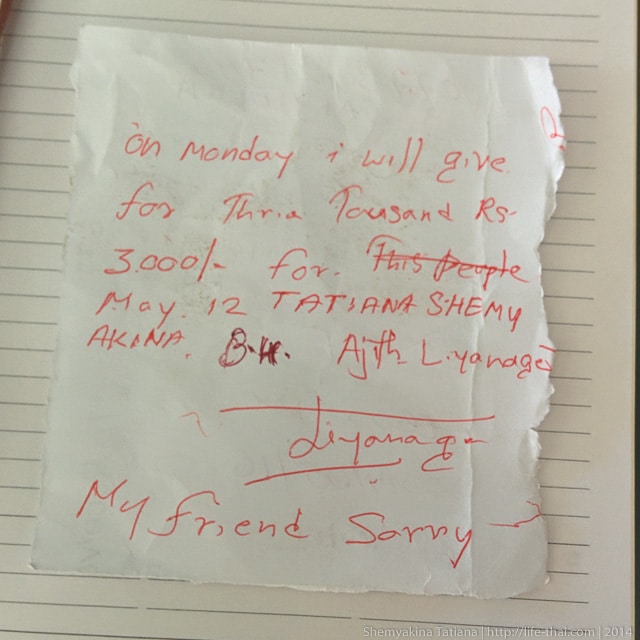 on Monday i will give
for Thria Tousand Rs-
3.000/- for. This people
May. 12 TATIANA SHEMY
AKINA. B.H. Ajith Liyanage
Liyanage
My friend Sorry
Shemyakina Tatiana | http://life-thai.com | 2014